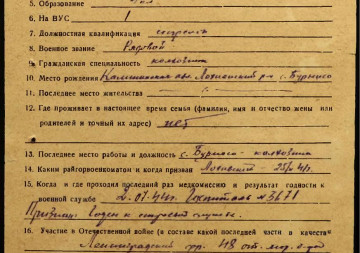 5. Образование
6. На ВУС 1
7. Должностная квалификация стрелок
8. Военное звание Рядовой
9. Гражданская специальность колхозник
10. Место рождения Калининская обл. с. Бурцево
11. Последнее место жительства
12. Где проживает в настоящее время семья (фамилия, имя и отчество жены или
родителей и точный их адрес) нет
13. Последнее место работы и должность с. Бурцево - колхозник
14. Каким райгорвоенкоматом и когда призван 41 г.
15. Когда и где проходил последний раз медкомиссию и результат годности к
военной службе Госпиталь № 3671
Признан годен к строевой службе.
16. Участие в Отечественной войне (в составе какой последней части в качеств
Ленинградский фр. 48 от.